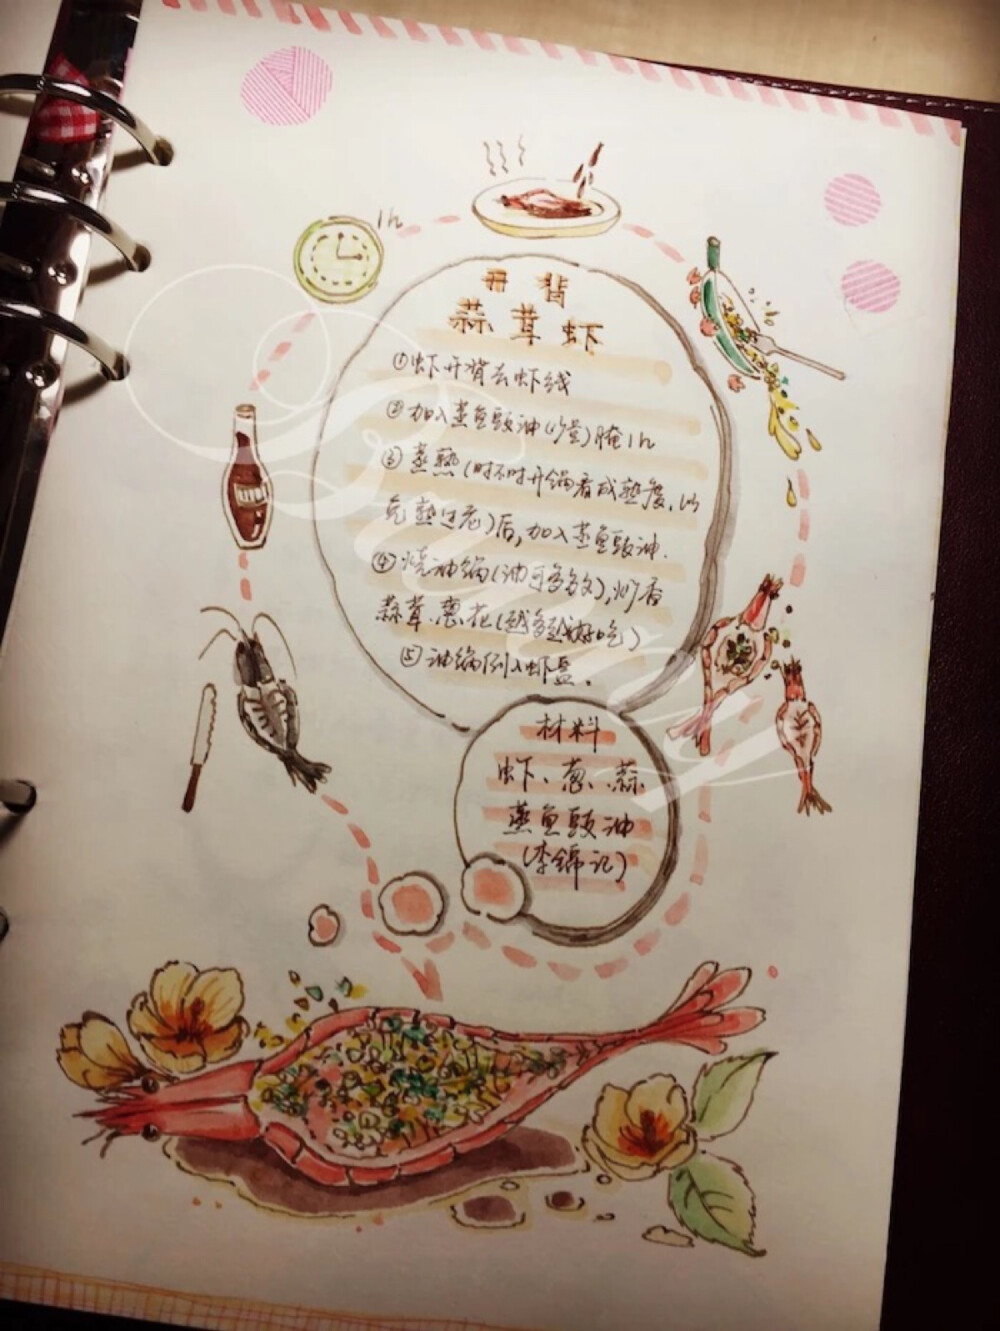 1h
开背
蒜茸虾
①虾开背去虾线
②加入蒸鱼豉油(少量)腌1h
③蒸熟(时不时开锅看成熟度,以
免熟过老)后,加入蒸鱼豉油.
④烧油锅(油可多放),炒香
蒜茸、葱花(越多越好吃)
⑤油锅倒入虾盘.
材料
虾、葱、蒜
蒸鱼豉油
(李锦记)